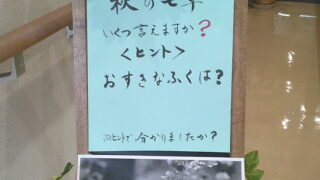 秋の七草
いくつ言えますか?
<ヒント>
おすきなふくは?
このヒントで分かりましたか?